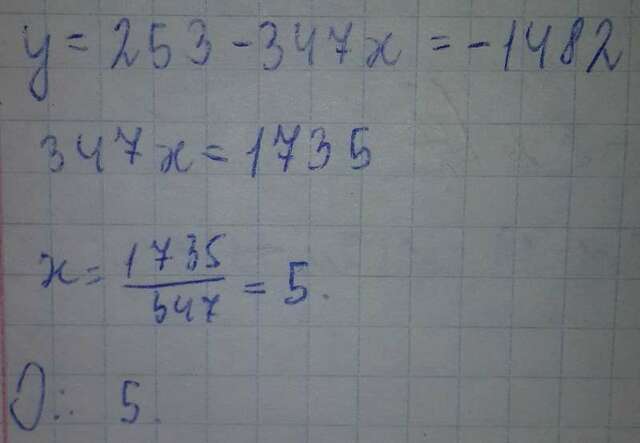 y = 253 - 347x = -1482
347x = 1735
x = 1735/347 = 5.
О.: 5.